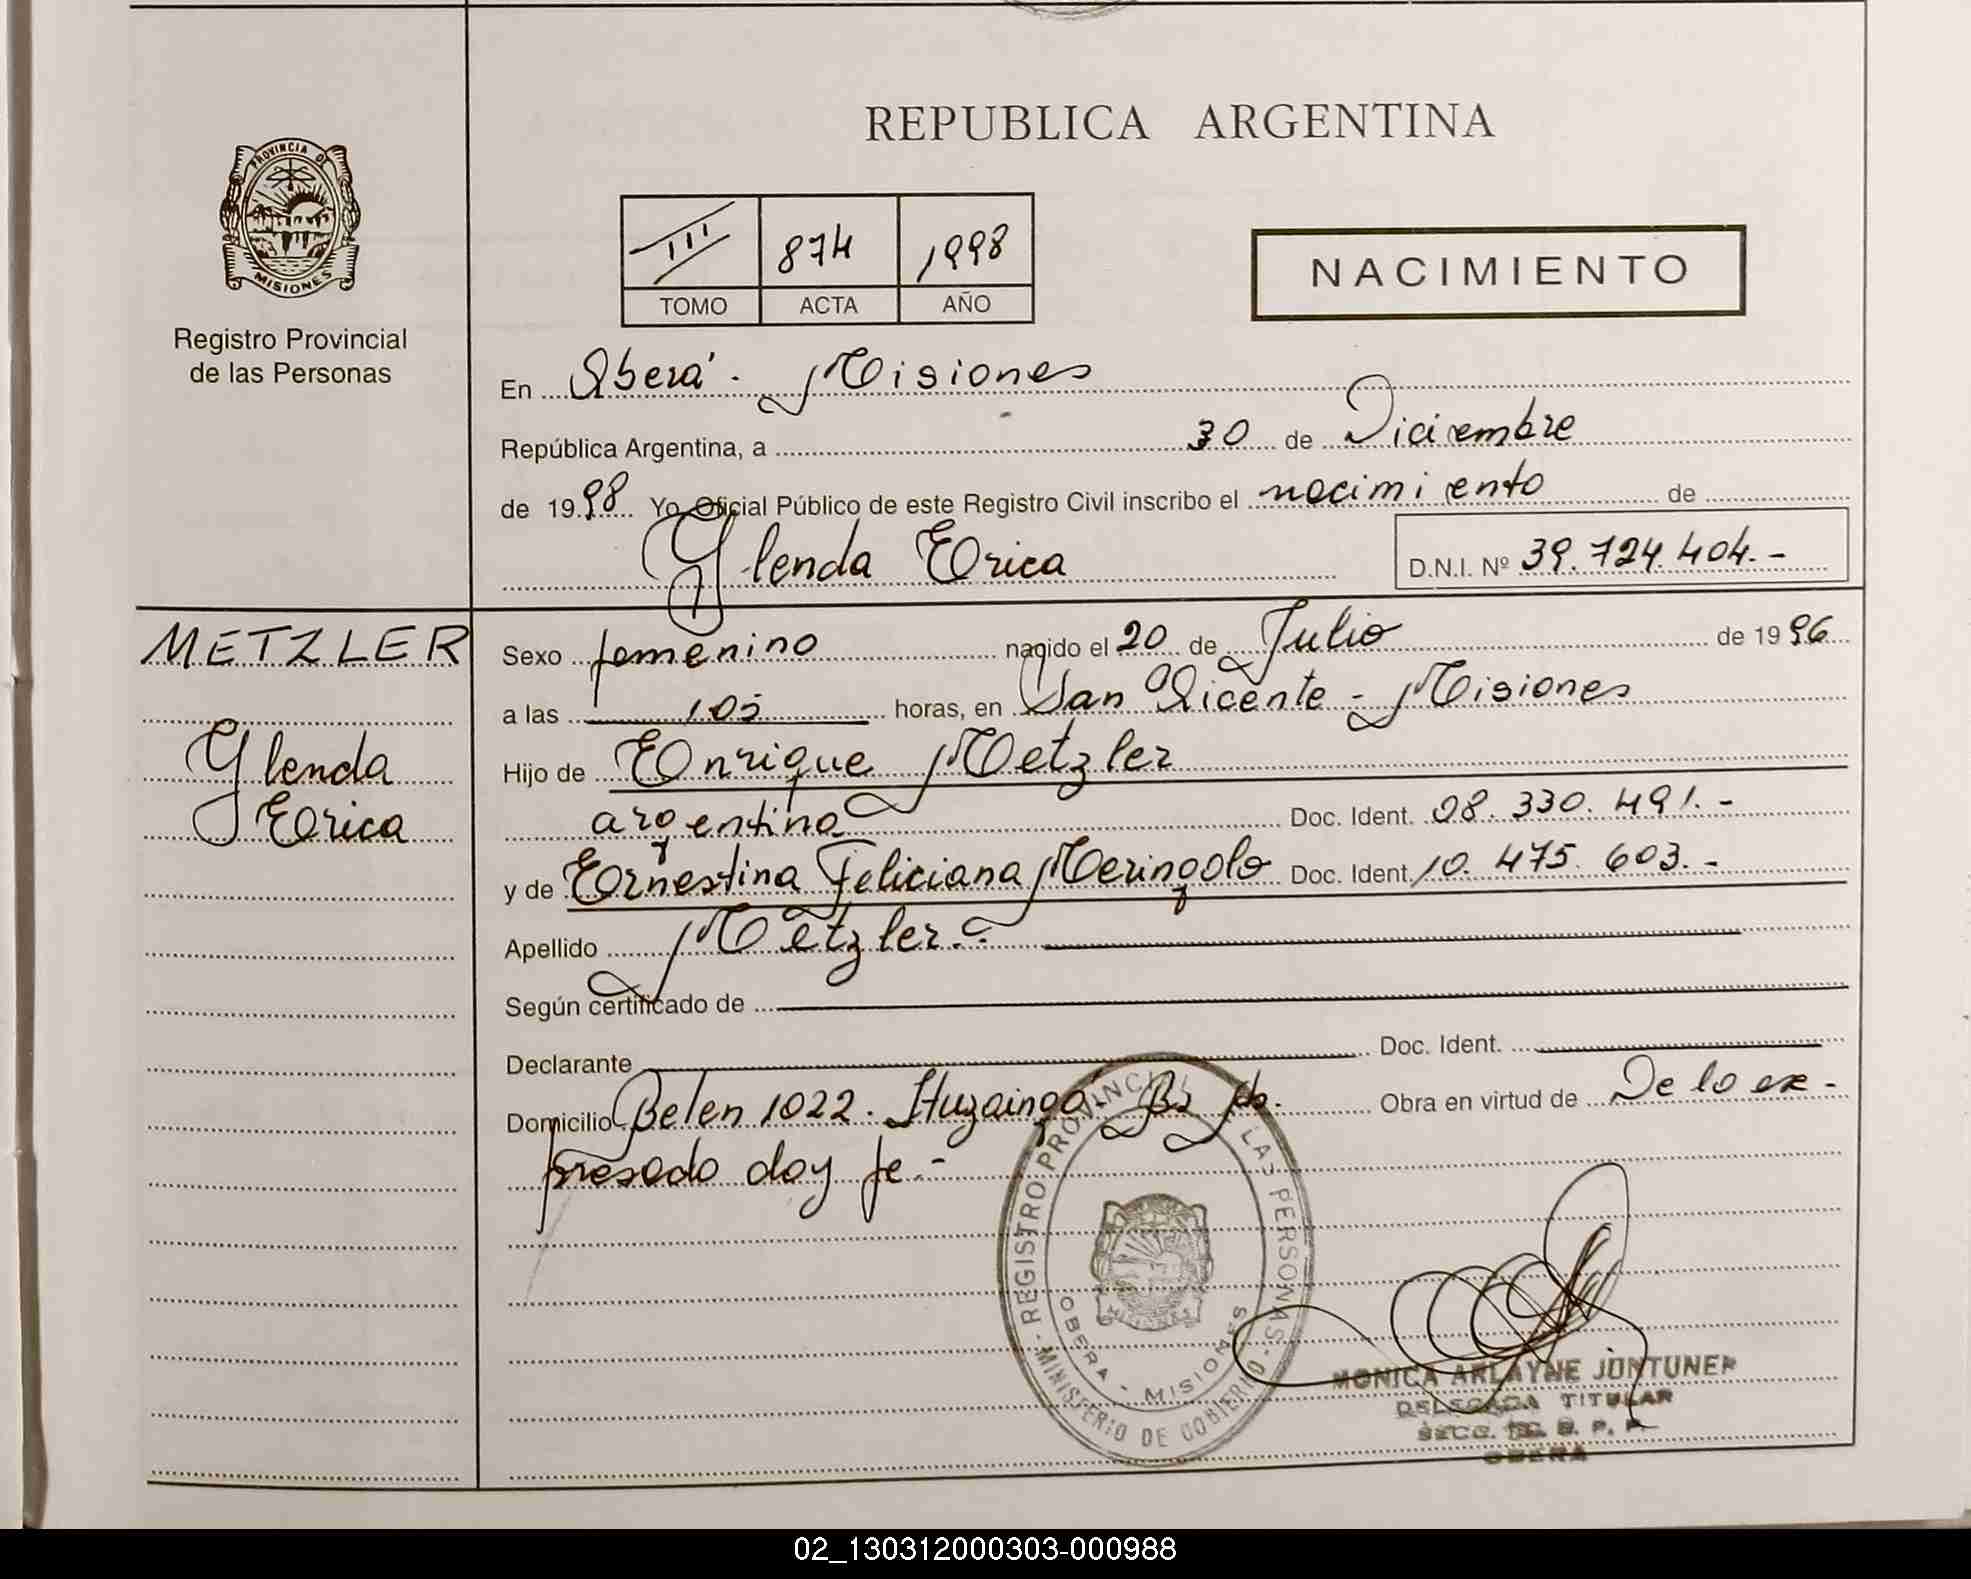 PROVINCIA DE
MISIONES
Registro Provincial
de las Personas
REPUBLICA ARGENTINA
III 874 1998
TOMO ACTA AÑO
NACIMIENTO
En Oberá. Misiones
República Argentina, a 30 de Diciembre
de 1998 Yo Oficial Público de este Registro Civil inscribo el nacimiento de
Glenda Erica D.N.I. Nº 39.724.404.-
METZLER
Glenda
Erica
Sexo femenino nacido el 20 de Julio de 1996
a las 1,05 horas, en San Vicente - Misiones
Hijo de Enrique Metzler
argentina Doc. Ident. 08.330.491.-
y de Ernestina Feliciana Meringolo Doc. Ident. 10.475.603.-
Apellido Metzler.-
Según certificado de
Declarante Doc. Ident.
Domicilio Belen 1022. Ituzaingó Bs As. Obra en virtud de De lo ex-
presado doy fe.-
REGISTRO PROVINCIAL DE LAS PERSONAS
MINISTERIO DE GOBIERNO
OBERA - MISIONES
MISIONES
MONICA ARLAYNE JUNTUNEN
DELEGADA TITULAR
SECC. R. P. P.
OBERA
02_130312000303-000988